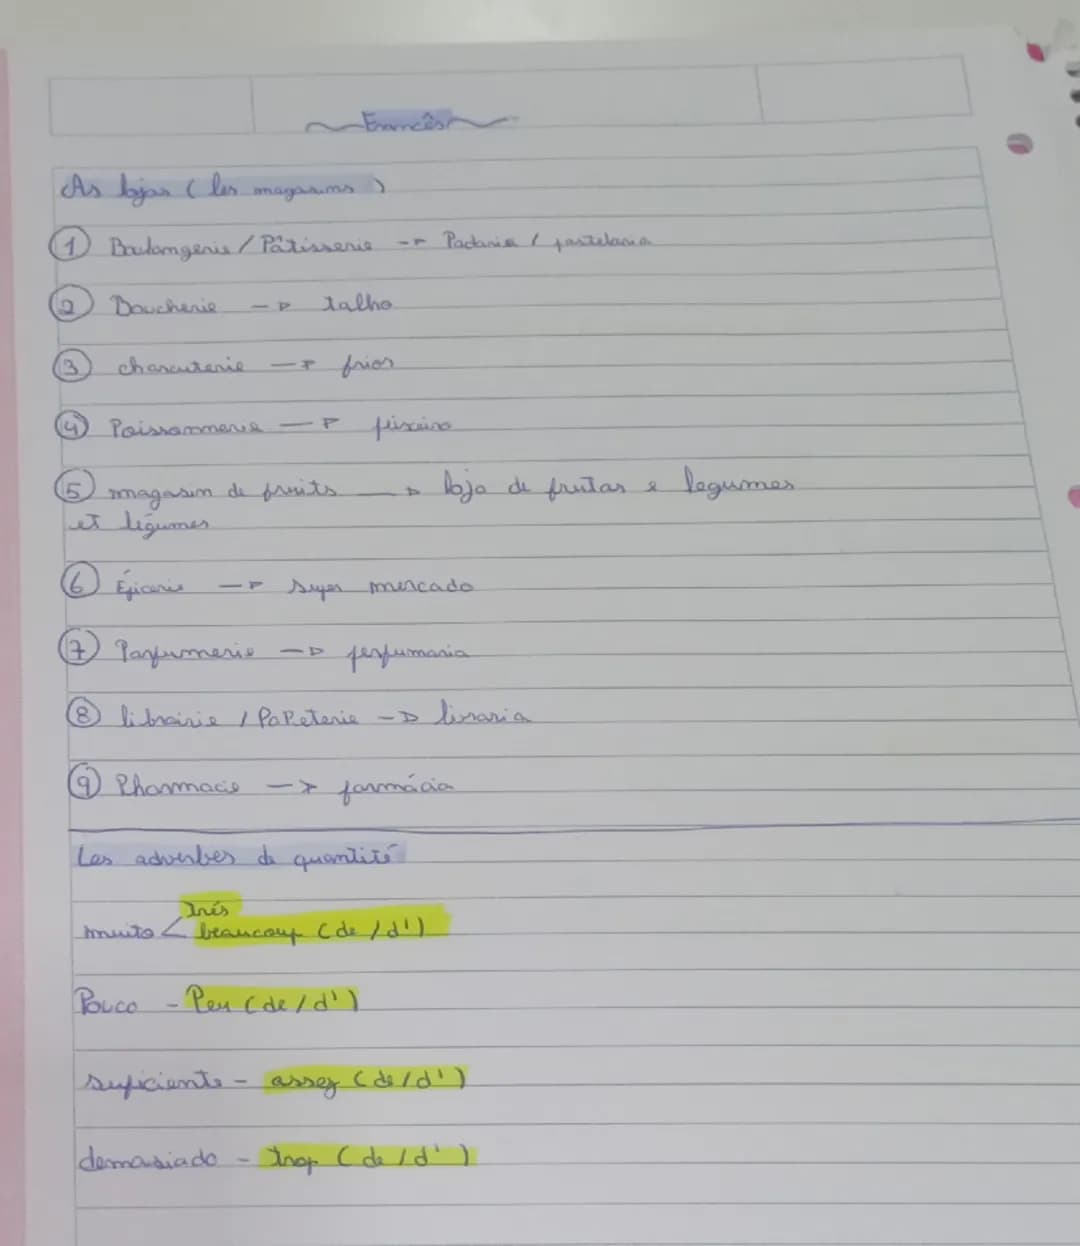 Francês
As lojas ( les magasins )
1 Boulangerie / Pâtisserie -> Padaria / pastelaria
2 Boucherie -> talho
3 charcuterie -> frios
4 Poissonnerie -> peixeiro
5 magasin de fruits -> loja de frutas e legumes
et légumes
6 Épicerie -> super mercado
7 Parfumerie -> perfumaria
8 librairie / PaPeterie -> livraria
9 Pharmacie -> farmácia
Les adverbes de quantité
Trés
muito < beaucoup (de / d')
Pouco - Peu (de / d')
suficiente - assez (de / d')
demasiado - trop (de / d')